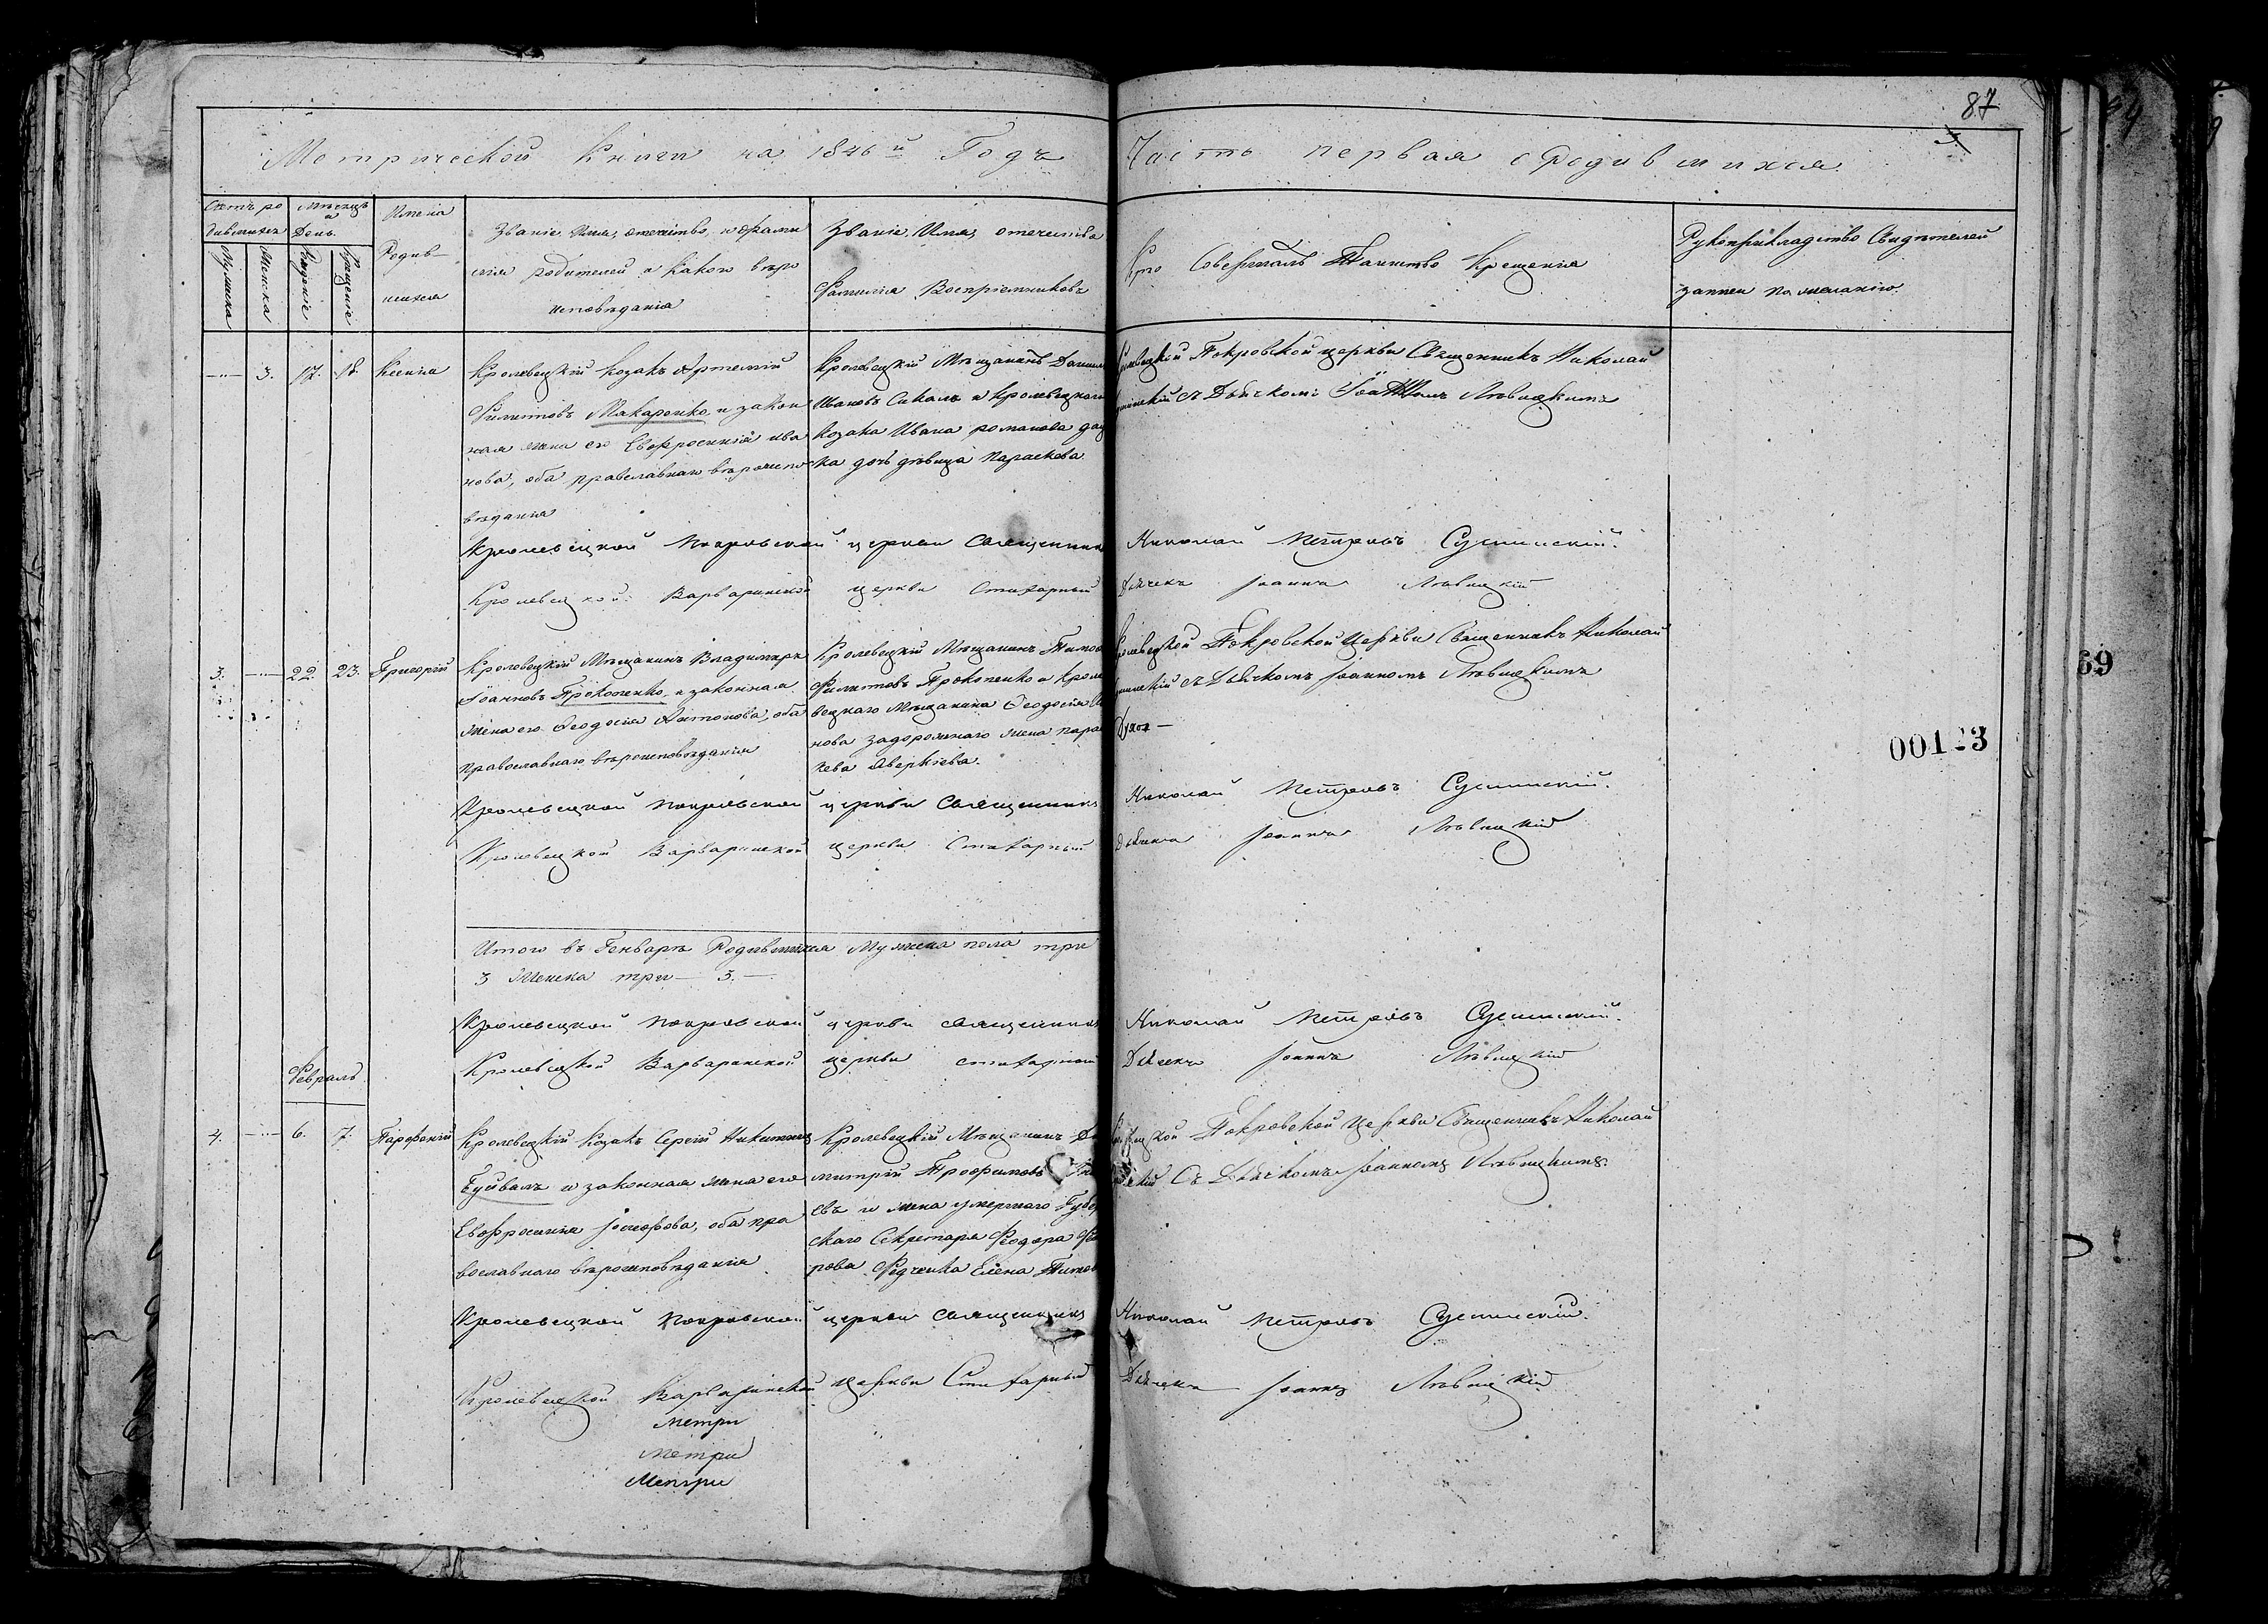 87
Метрической Книги на 1846й Годъ
Часть первая о Родившихся
Счетъ ро
дившихся
Мѣсяцъ
и
День.
Имена
Родив-
шихся
Званіе, Имя, отечитво, и фами
лія родителей и какого вѣро
исповѣданія
Званіе, Имя, отечитво
Фамилія Воспріемниковъ
Кто Совершалъ Таинство Крещенія
Рукоприкладство Свидѣтелей
записи по желанію.
Мужеска
Женска
Рожденіе
Крещеніе
3. 17. 18. Ксенія
Кролевецкій козакъ Артемій
Филиповъ Макаренко и закон
ная жена его Евфросинія ива
нова, оба православнаго вѣроиспо
вѣданія
Кролевецкій Мѣщанинъ
Ивановъ и Кролевецкаго
козака Ивана романова
ка дочь дѣвица Параскева
Покровской церкви Священникъ Николай
съ Дьячкомъ Іоанномъ Лѣвицкимъ
Кролевецкой Покровской церкви Священникъ Николай Петровъ
Кролевецкой Варваринской церкви Стихарный Дьячекъ Іоаннъ Лѣвицкій
3. 22. 23. Григорій
Кролевецкій Мѣщанинъ Владимиръ
Іоанновъ Прокопенко и законная
жена его Феодосія Антонова, оба
православнаго вѣроисповѣданія
Кролевецкій Мѣщанинъ
Филиповъ Прокопенко и Кроле
вецкаго Мѣщанина Феодосія
нова задорожнаго жена пара
кева Аверкіева.
Покровской Церкви Священникъ Николай
съ Дьячкомъ Іоанномъ Лѣвицкимъ
00123
69
Кролевецкой Покровской церкви Священникъ Николай Петровъ
Кролевецкой Варваринской церкви Стихарный Дьячекъ Іоаннъ Лѣвицкій
Итого въ Генварѣ Родившихся Мужеска пола три
3 Женска три — 3. —
Кролевецкой Покровской церкви священникъ Николай Петровъ
Кролевецкой Варваринской церкви стихарной Дьячекъ Іоаннъ Лѣвицкій
Февраль
4. 6. 7. Парфеній
Кролевецкій Козакъ Сергій Никитинъ
Буйвалъ и законная жена его
Евфросинія Іосифова, оба пра
вославнаго вѣроисповѣданія
Кролевецкій Мѣщанинъ Ди
митрій Трофимовъ
евъ и жена умершаго Губер
скаго Секретаря Феодора
рова Федченка Елена
Покровской Церкви Священникъ Николай
Съ Дьячкомъ Іоанномъ Лѣвицкимъ
Кролевецкой Покровской церкви священникъ Николай Петровъ
Кролевецкой Варваринской церкви Стихарный Дьячекъ Іоаннъ Лѣвицкій
Метри
Метри
Метри